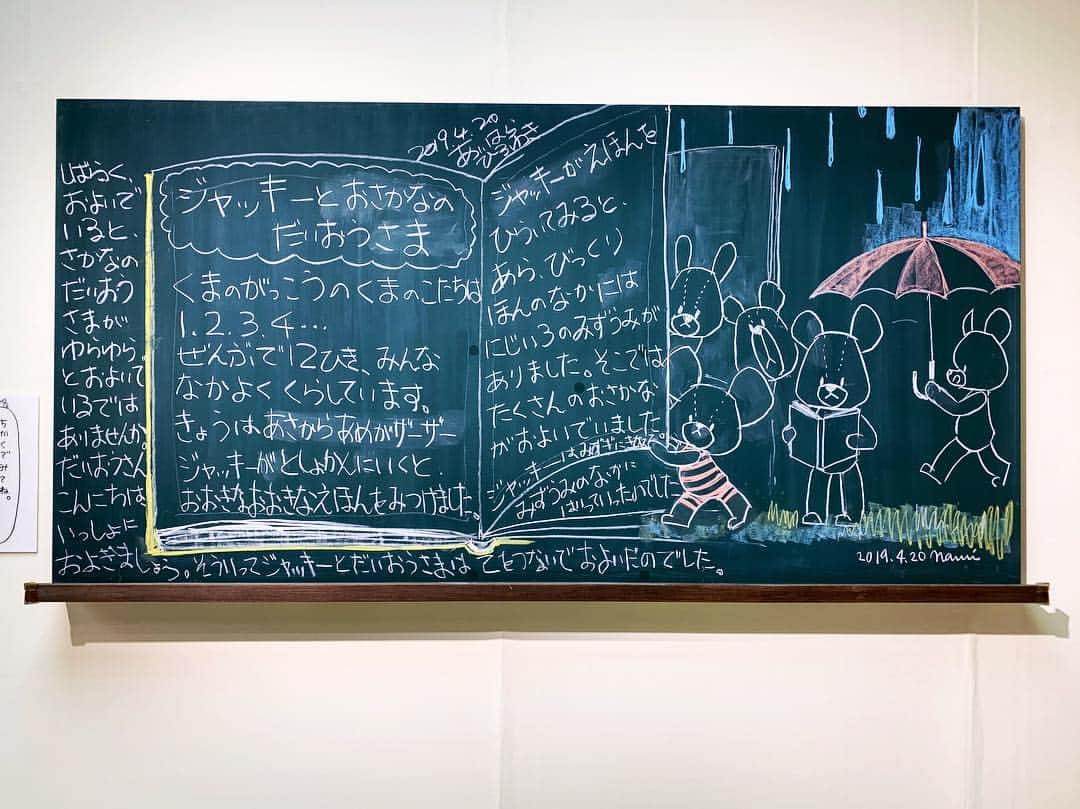 2019.4.20
あいはらひろゆき
ジャッキーとおさかなの
だいおうさま
くまのがっこうのくまのこたちは
1.2.3.4…
ぜんぶで12ひき、みんな
なかよくくらしています。
きょうはあさからあめがザーザー
ジャッキーがとしょかんにいくと
おおきなおおきなえほんをみつけました。
ジャッキーがえほんを
ひらいてみると、
あら、びっくり
ほんのなかには
にじいろのみずうみが
ありました。そこでは
たくさんのおさかな
がおよいでいました
ジャッキーはみずぎにきがえ、
みずうみのなかに
はいっていったのでした
しばらく
およいで
いると、
さかなの
だいおう
さまが
ゆらゆら
とおよいで
いるでは
ありませんか。
だいおうさん
こんにちは、
いっしょに
およぎましょう。そういってジャッキーとだいおうさまは てをつないでおよいだのでした。
2019.4.20 nami
ちかくでみてね。